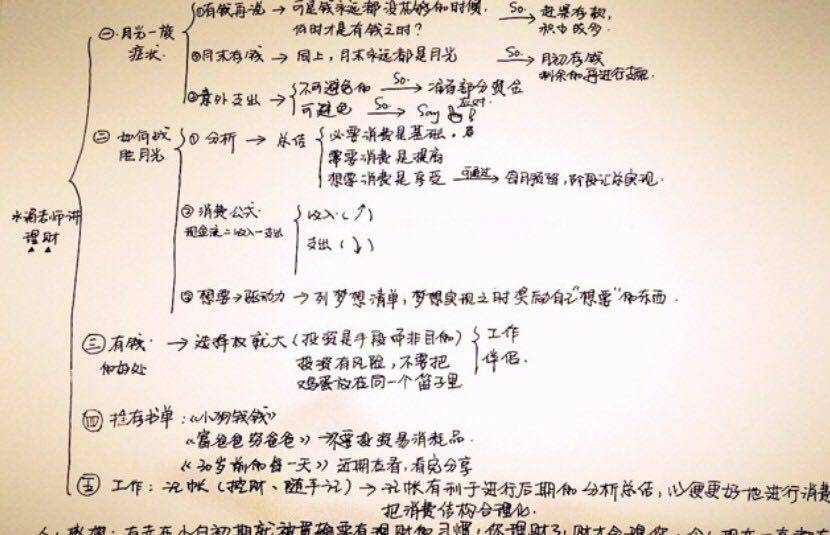 水湄老师讲理财
㊀月光一族症状
①有钱再说 → 可是钱永远都没有够的时候,何时才是有钱之时? So. → 赶紧存款,积少成多.
②月末存钱 → 同上,月末永远都是月光 So. → 月初存钱剩余的再进行支配.
③意外支出 → 不可避免的 So. → 准备部分资金应对.
可避免 So. → Say
㊁如何战胜月光
①分析 → 总结
必要消费是基础.
需要消费是提高
想要消费是享受 可通过 → 每月预留,阶段汇总实现.
②消费公式
现金流=收入-支出
收入(↑)
支出(↓)
③想要→驱动力 → 列梦想清单,梦想实现之时奖励自己"想要"的东西.
㊂有钱的好处 → 选择权就大(投资是手段而非目的)
投资有风险,不要把
鸡蛋放在同一个篮子里
工作
伴侣.
㊃推荐书单:《小狗钱钱》
《富爸爸穷爸爸》→不要投资易消耗品.
《30岁前的每一天》近期在看,看完分享
㊄工作:记帐(挖财、随手记)→ 记帐有利于进行后期的分析总结,以便更好地进行消费
把消费结构合理化.